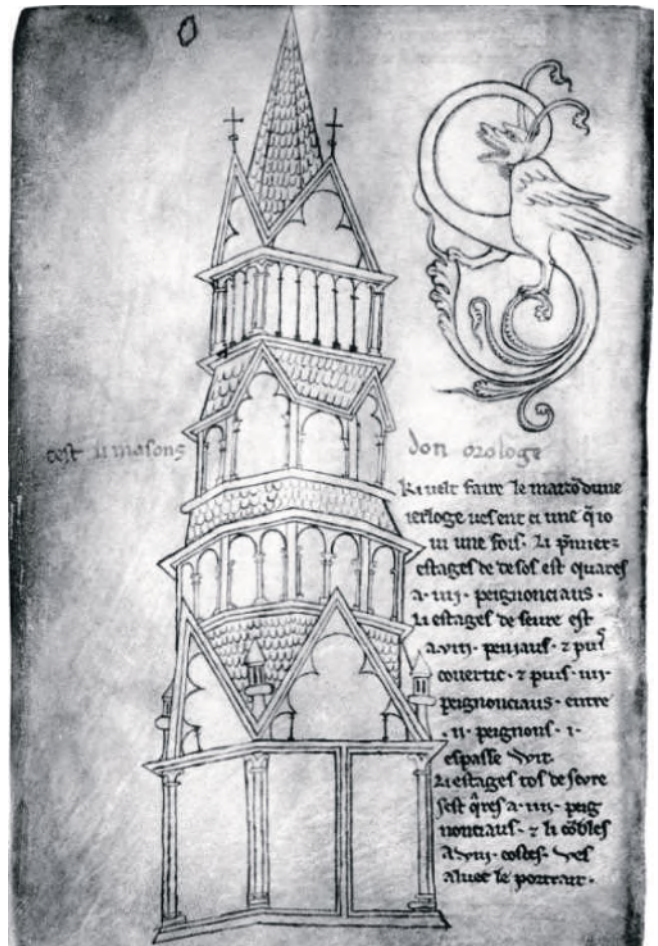 cest li masons don orologe
Ki velt faire le maizõ dune
ierloge ves ent ci une q̃ io
vi une fois. Li p̃miers
estages de desos est quares
a .iiii. peignonciaus.
Li estages de seure est
a .viii. peniaus. 7 puis
covertic. 7 puis .iiii.
peignonciaus. entre
.ii. peignons .i.
espasse wit.
Li estages tos de sevre
sest q̃res a .iiii. peig
nonciaus. 7 li cõbles
a .viii. costes. ves
aluec le portrait.